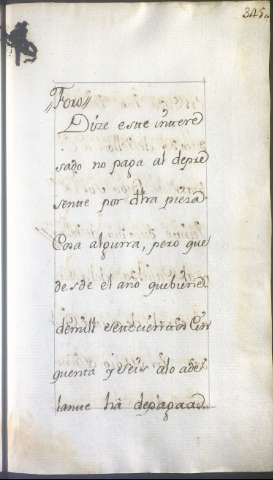 345
"Foro"
Dize este intere
sado no paga al depre
sente por dha pieza
Cosa algurra, pero que
desde el año que biene
de mill setecienttos Cin
quenta y seis alo ade
lante ha depagaar